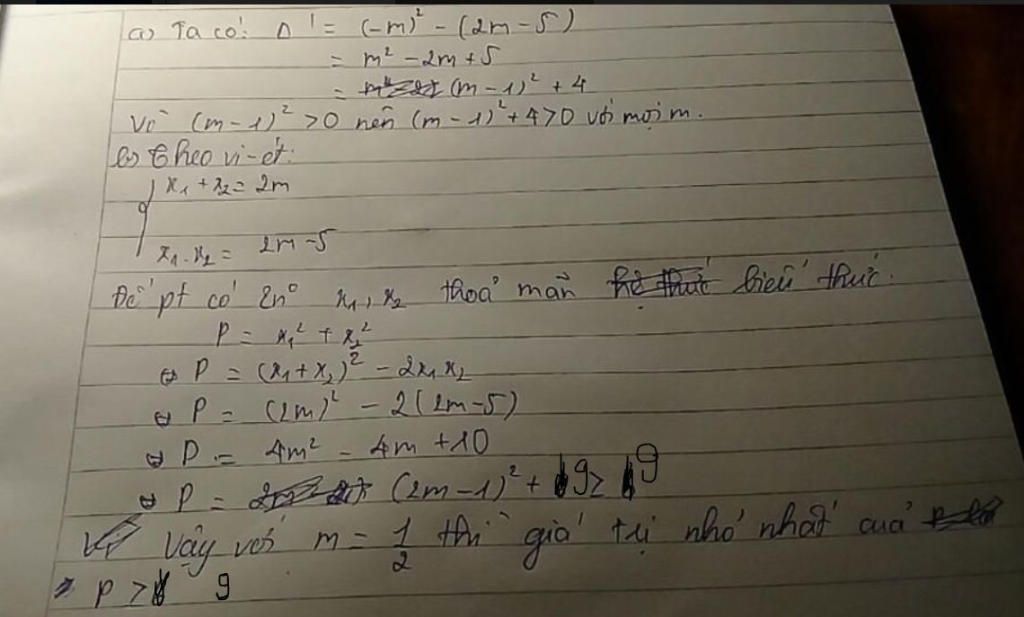 a) Ta có: Δ' = (-m)² - (2m - 5)
= m² - 2m + 5
= (m - 1)² + 4
Vì (m - 1)² > 0 nên (m - 1)² + 4 > 0 với mọi m.
b) Theo vi-ét:
{ x₁ + x₂ = 2m
x₁ . x₂ = 2m - 5
Để pt có 2n⁰ x₁, x₂ thoả mãn hệ thức biểu thức.
P = x₁² + x₂²
⇔ P = (x₁ + x₂)² - 2x₁x₂
⇔ P = (2m)² - 2(2m - 5)
⇔ P = 4m² - 4m + 10
⇔ P = (2m - 1)² + 9 ≥ 9
Vậy với m = 1/2 thì giá trị nhỏ nhất của
P ≥ 9